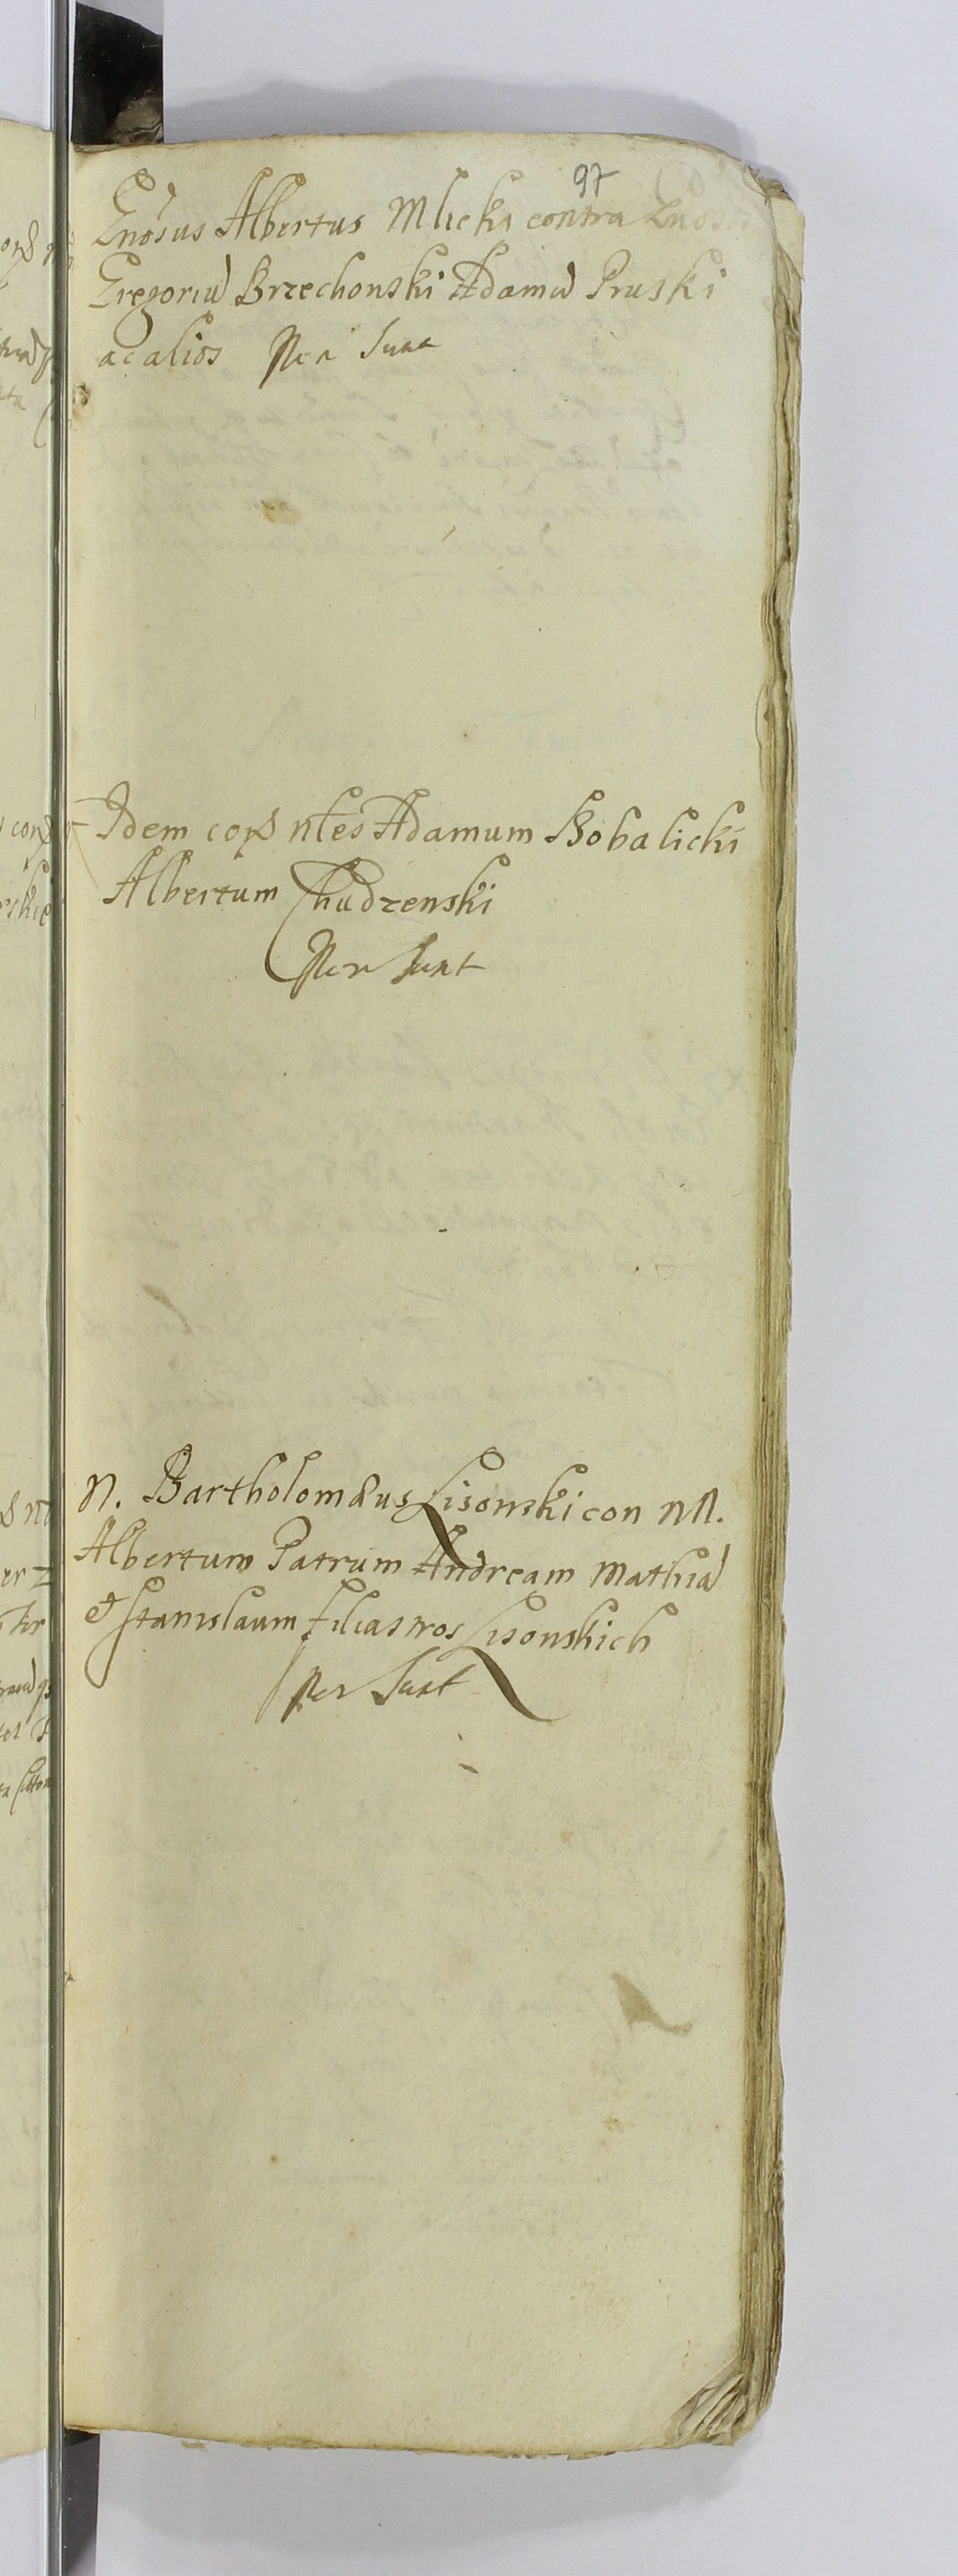 97
Gnosus Albertus Mlicki contra Gnosos
Gregoriu Brzechonski Adamu Pruski
ac alios Per Sunt
Idem con ntes Adamum Bobalicki
Albertum Chudzenski
Per Sunt
N. Bartholomæus Lisonski con NN.
Albertum Patrum Andream Mathia
et Stanislaum filiastros Lisonskich
Per Sunt